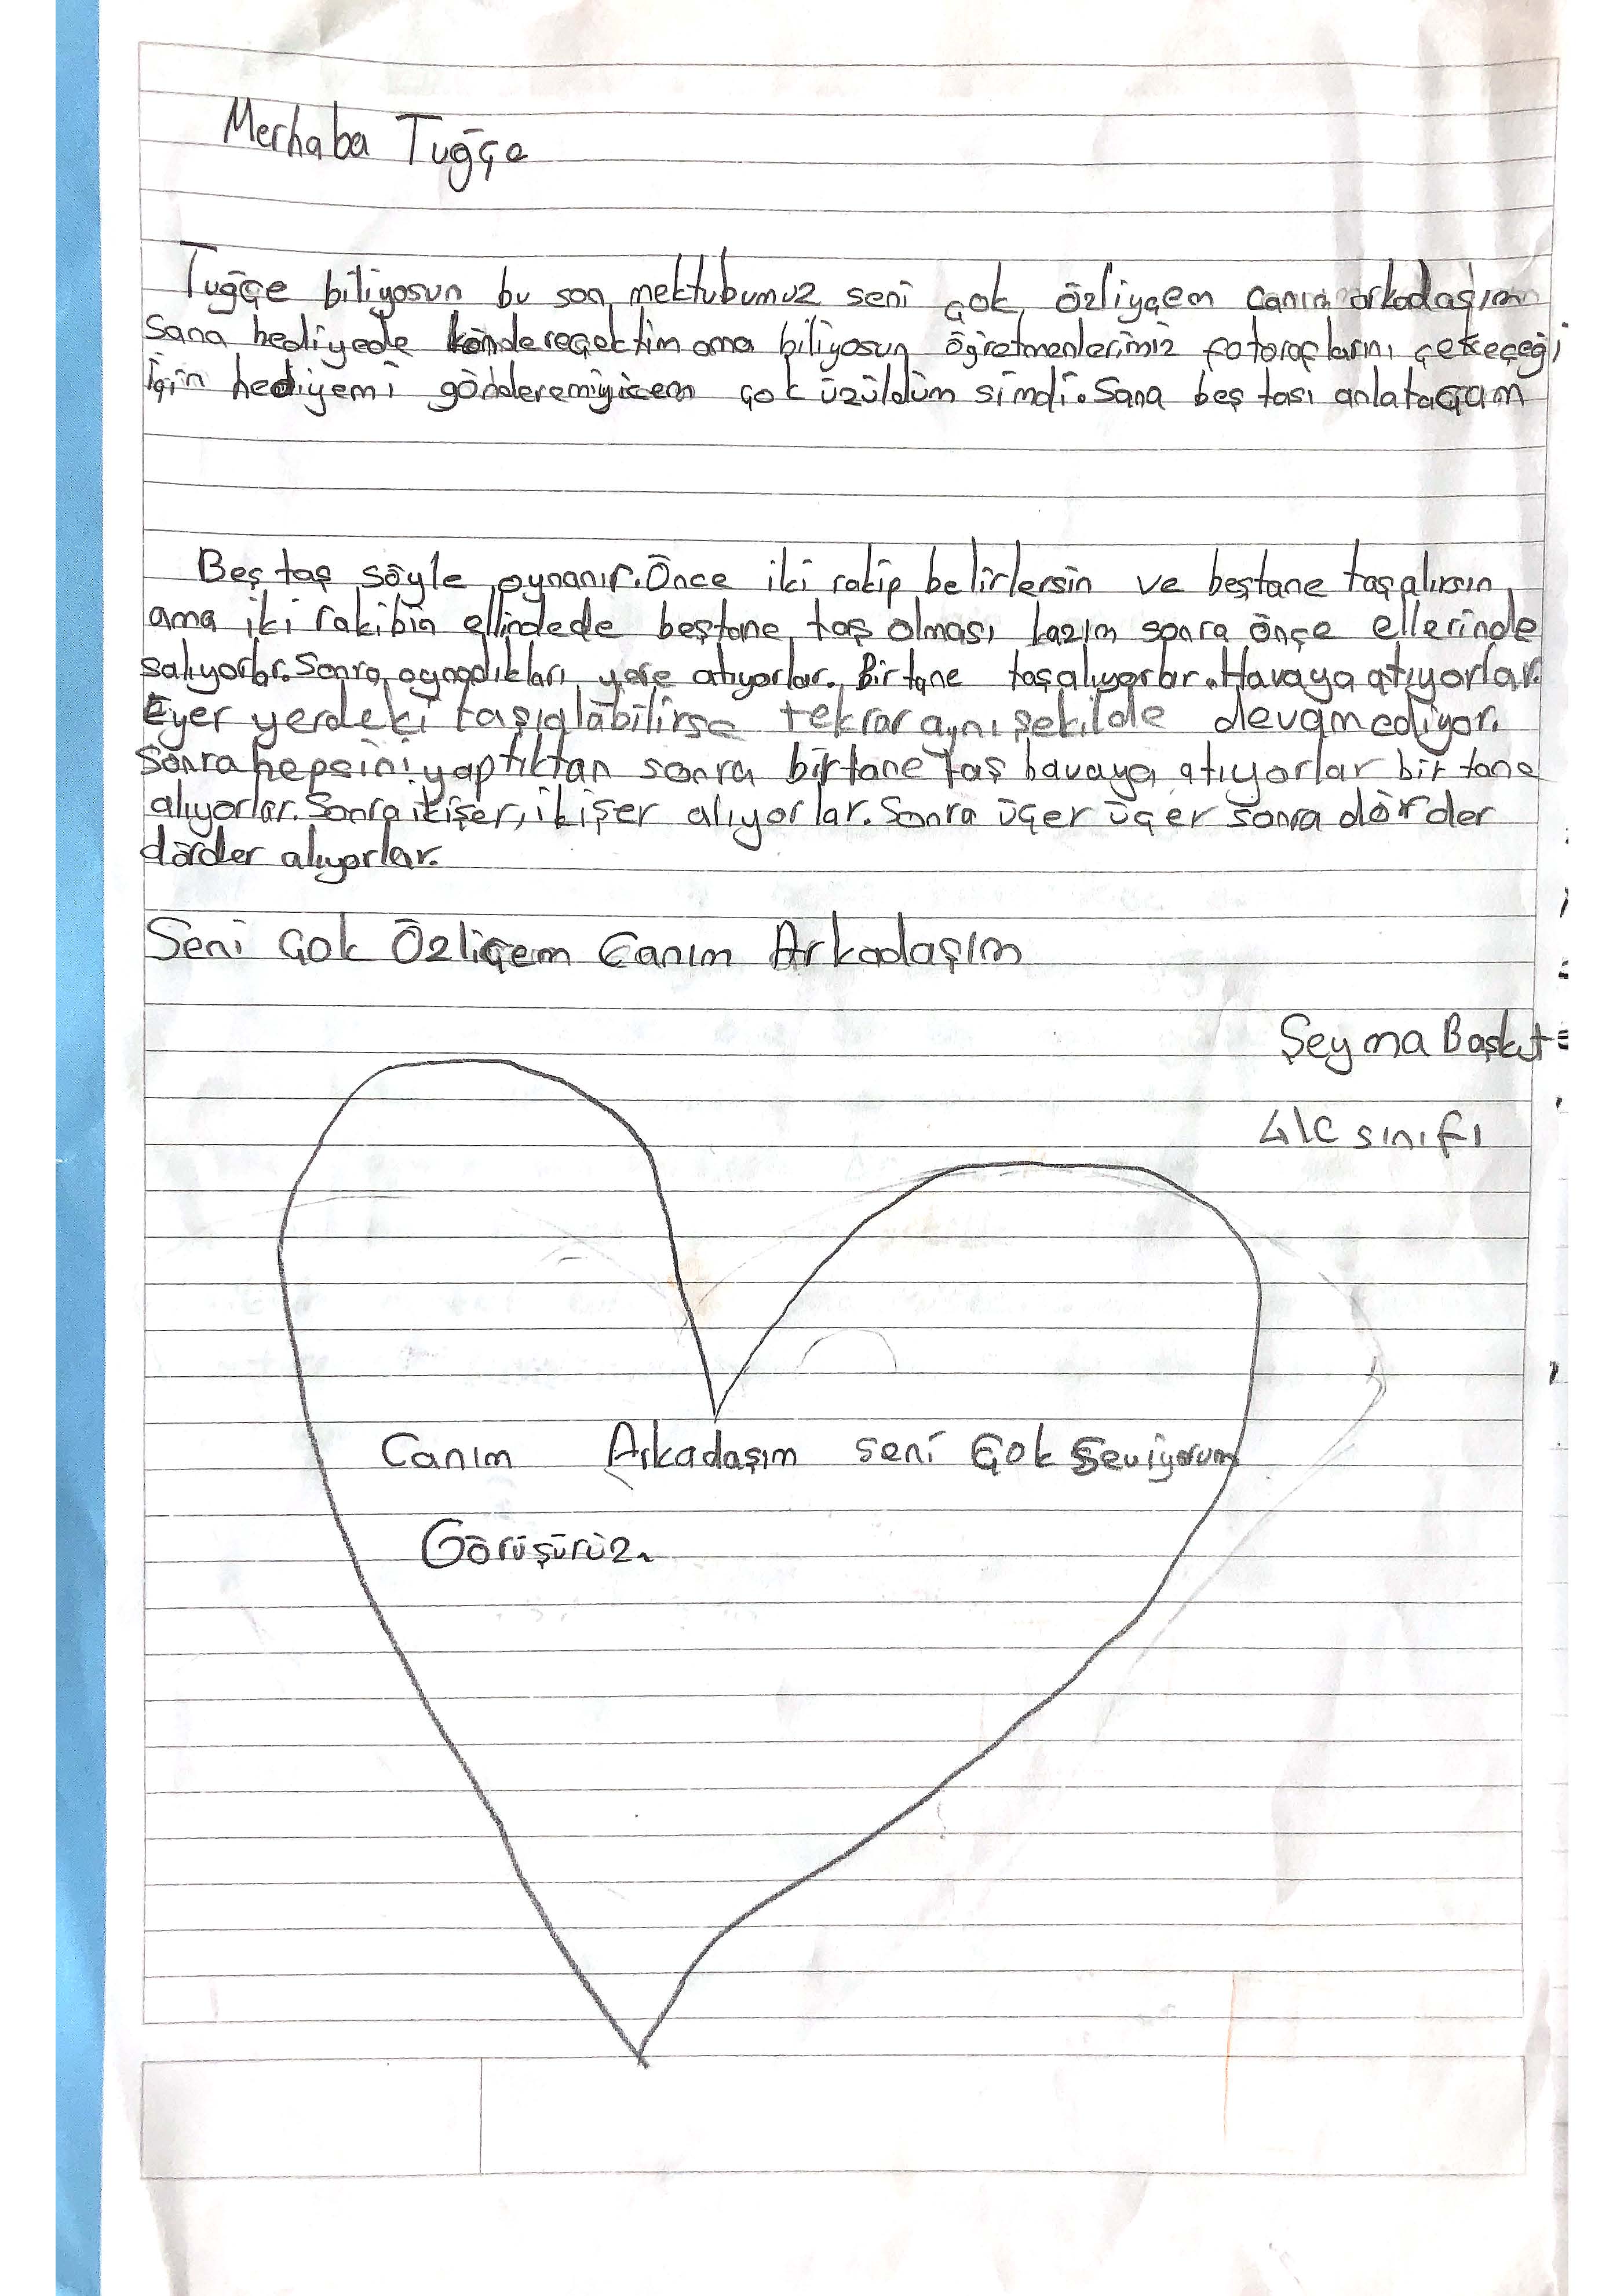 Merhaba Tuğçe
Tuğçe biliyosun bu son mektubumuz seni çok özliyçem canım arkadaşım
Sana hediyede köndereçektim ama biliyosun öğretmenlerimiz fotoraflarını çekeçeği
için hediyemi gönderemiyicem çok üzüldüm simdi. Sana beş tası anlataçam
Beş taş söyle oynanır. Önce iki rakip belirlersin ve beştane taşalırsın
ama iki rakibin ellindede beştane taş olması lazım sonra önçe ellerinde
salıyorlar. Sonra oynadıkları yere atıyorlar. Birtane taşalıyorlar. Havaya atıyorlar.
Eyer yerdeki taşıalabilirse tekrar aynı şekilde devamediyor.
Sonra hepsini yaptıktan sonra birtane taş havaya atıyorlar bir tane
alıyorlar. Sonra ikişer, ikişer alıyorlar. Sonra üçer üçer sonra dörder
dörder alıyorlar.
Seni Çok Özliçem Canım Arkadaşım
Şeyma Başkut
4\C sınıfı
Canım Arkadaşım seni Çok Seviyorum
Görüşürüz.